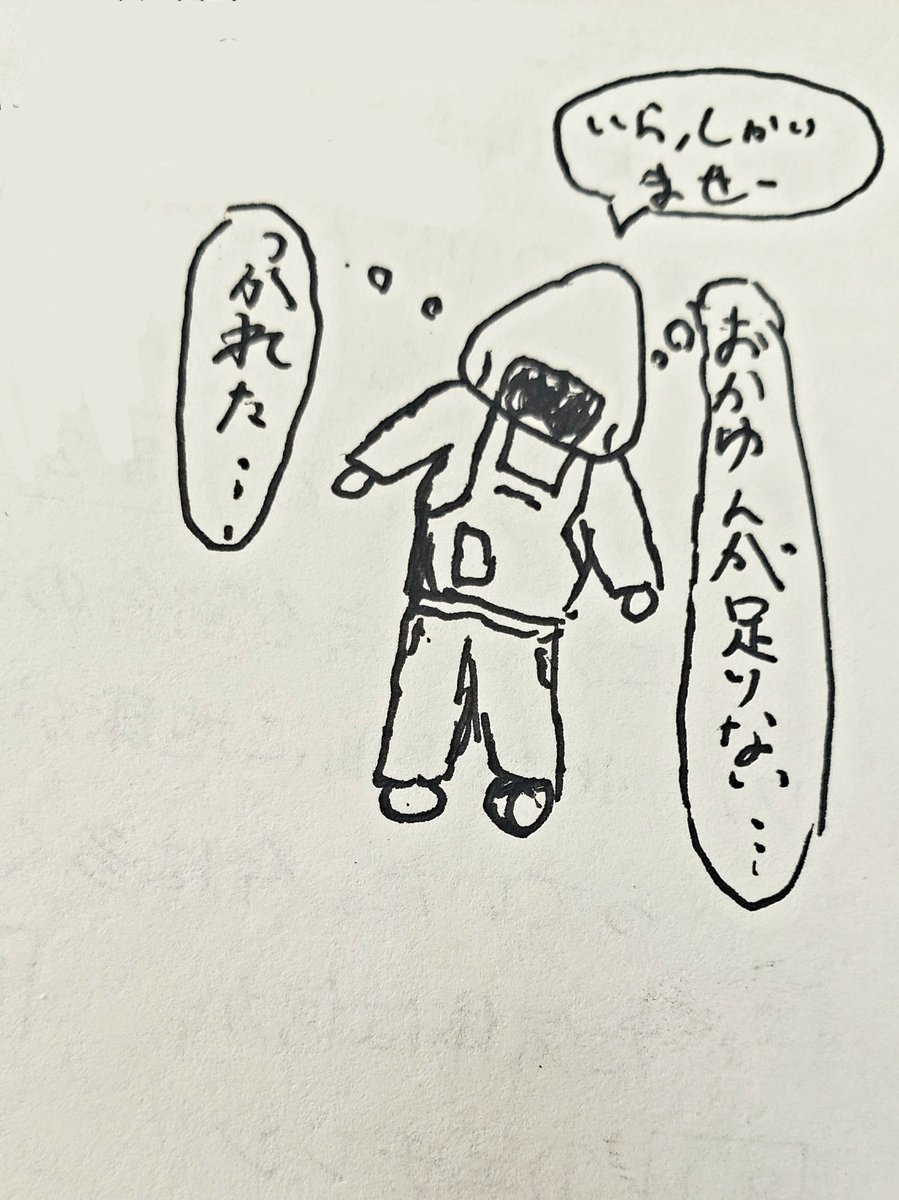 いらっしゃい
ませー
おかゆんが足りない…
つかれた…